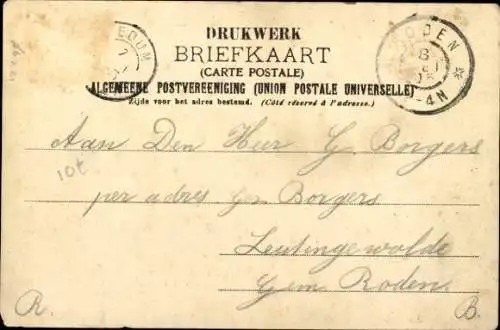 DRUKWERK
BRIEFKAART
(CARTE POSTALE)
ALGEMEENE POSTVEREENIGING (UNION POSTALE UNIVERSELLE)
Zijde voor het adres bestemd. (Côté réservé à l'adresse.)
EDUM
7
RODEN
8
4N
Aan Den Heer G Borgers
10t
per adres Gm Borgers
Leutingewolde
Gem Roden
R. B.